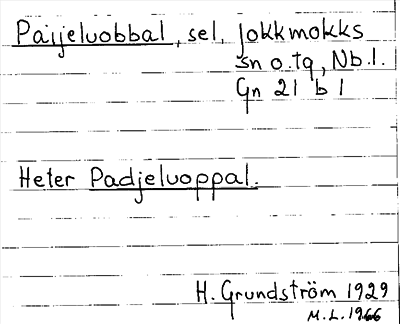 Paijeluobbal, sel, Jokkmokks
sn o. tg, Nb. l.
Gn 21 b 1
Heter Padjeluoppal.
H. Grundström 1929
M. L. 1966